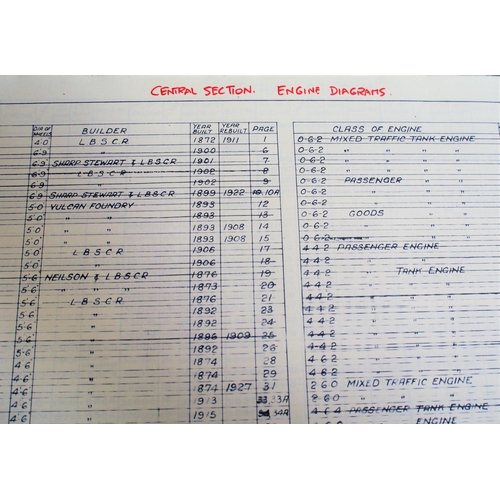 CENTRAL SECTION. ENGINE DIAGRAMS.
DIA OF WHEELS BUILDER YEAR BUILT YEAR REBUILT PAGE CLASS OF ENGINE
4.0 L.B.S.C.R 1872 1911 1 0-6-2 MIXED TRAFFIC TANK ENGINE
6.9 " 1900 6 0-6-2 " "
6.9 SHARP STEWART & L.B.S.C.R 1901 7 0-6-2 " "
6.9 L.B.S.C.R 1902 8 0-6-2 " "
6.9 " 1902 9 0-6-2 PASSENGER "
6.9 SHARP STEWART & L.B.S.C.R 1899 1922 10A 0-6-2 " "
5.0 VULCAN FOUNDRY 1893 12 0-6-2 " "
5.0 " " 1893 13 0-6-2 GOODS "
5.0 " " 1893 1908 14 0-6-2 " "
5.0 " " 1893 1908 15 0-6-2 " "
5.0 L.B.S.C.R 1906 17 4 4 2 PASSENGER ENGINE
5.0 " 1906 18 4 4 2 " "
5.6 NEILSON & L.B.S.C.R 1876 19 4 4 2 " TANK ENGINE
5.6 " " 1873 20 4 4 2 " "
5.6 L.B.S.C.R 1876 21 4 4 2 " "
5.6 " 1892 23 4 4 2 " "
5.6 " 1892 24 4 4 2 " "
5.6 " 1896 1909 25 4 4 2 " "
5.6 " 1892 26 4 4 2 " "
4.6 " 1874 28 4 4 2 " "
4.6 " 1874 29 " "
4.6 " 1874 1927 31 2 6 0 MIXED TRAFFIC ENGINE
4.6 " 913 33A 2 6 0 " "
4.6 " 1915 34A 4 6 4 PASSENGER TANK ENGINE
ENGINE